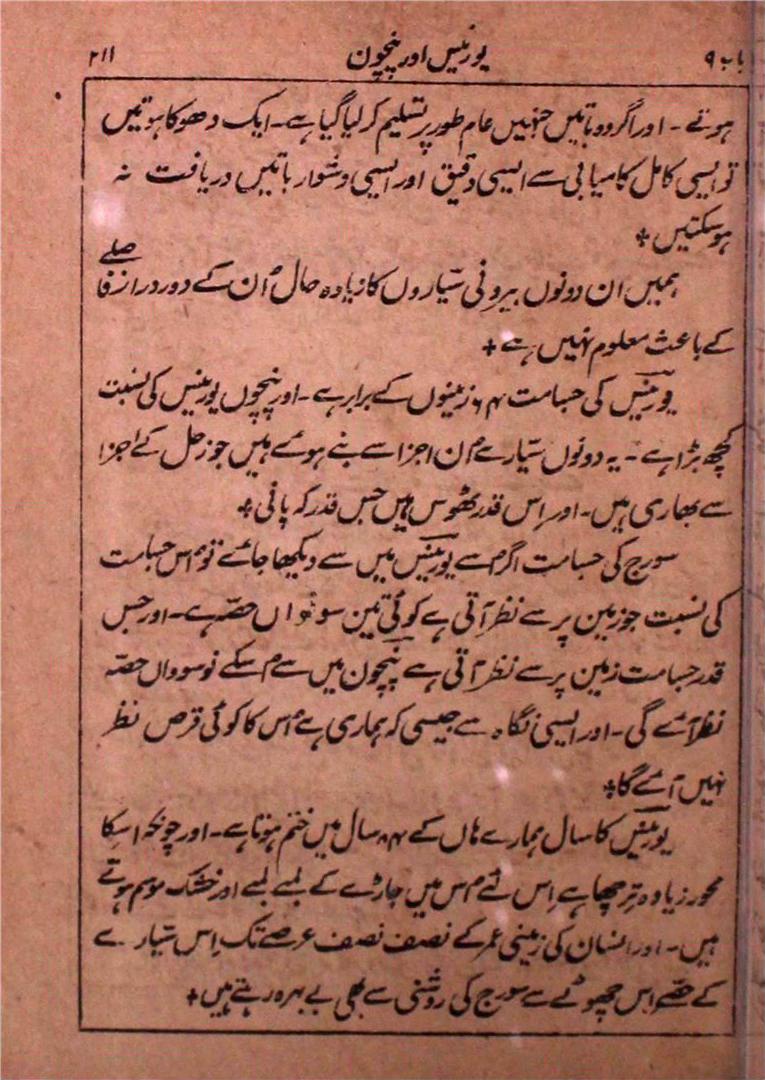 باب ۹ یورینس اور نپچون ۲۱۱
ہوتے ۔ اور اگر وہ باتیں جنہیں عام طور پر تسلیم کر لیا گیا ہے ۔ ایک دھوکا ہوتیں
تو ایسی کامل کامیابی سے ایسی دقیق اور ایسی دشوار باتیں دریافت نہ
ہو سکتیں +
ہمیں ان دونوں بیرونی سیّاروں کا زیادہ حال اُن کے دور دراز فاصلے
کے باعث معلوم نہیں ہے +
یورینس کی جسامت ۶۴ زمینوں کے برابر ہے ۔ اور نپچوں یورینس کی نسبت
کچھ بڑا ہے ۔ یہ دونوں سیّارے اُن اجزا سے بنے ہوئے ہیں جو زحل کے اجزا
سے بھاری ہیں ۔ اور اِس قدر ٹھوس ہیں جس قدر کہ پانی +
سورج کی جسامت اگر اُسے یورینس میں سے دیکھا جائے تو اُس جسامت
کی نسبت جو زمین پر سے نظر آتی ہے کوئی تین سوواں حصّہ ہے ۔ اور جس
قدر جسامت زمین پر سے نظر آتی ہے نپچون میں سے اُسکے نو سوواں حصّہ
نظر آئے گی ۔ اور ایسی نگاہ سے جیسی کہ ہماری ہے اُس کا کوئی قرص نظر
نہیں آئے گا +
یورینس کا سال ہمارے ہاں کے ۸۴ سال میں ختم ہوتا ہے ۔ اور چونکہ اسکا
محور زیادہ ترچھا ہے اِس لئے اُس میں جاڑے کے لمبے لمبے اور خشک موسم ہوتے
ہیں ۔ اور انسان کی زمینی عمر کے نصف نصف عرصے تک اِس سیّارے
کے حصّے اِس چھوٹے سے سورج کی روشنی سے بھی بے بہرہ رہتے ہیں +